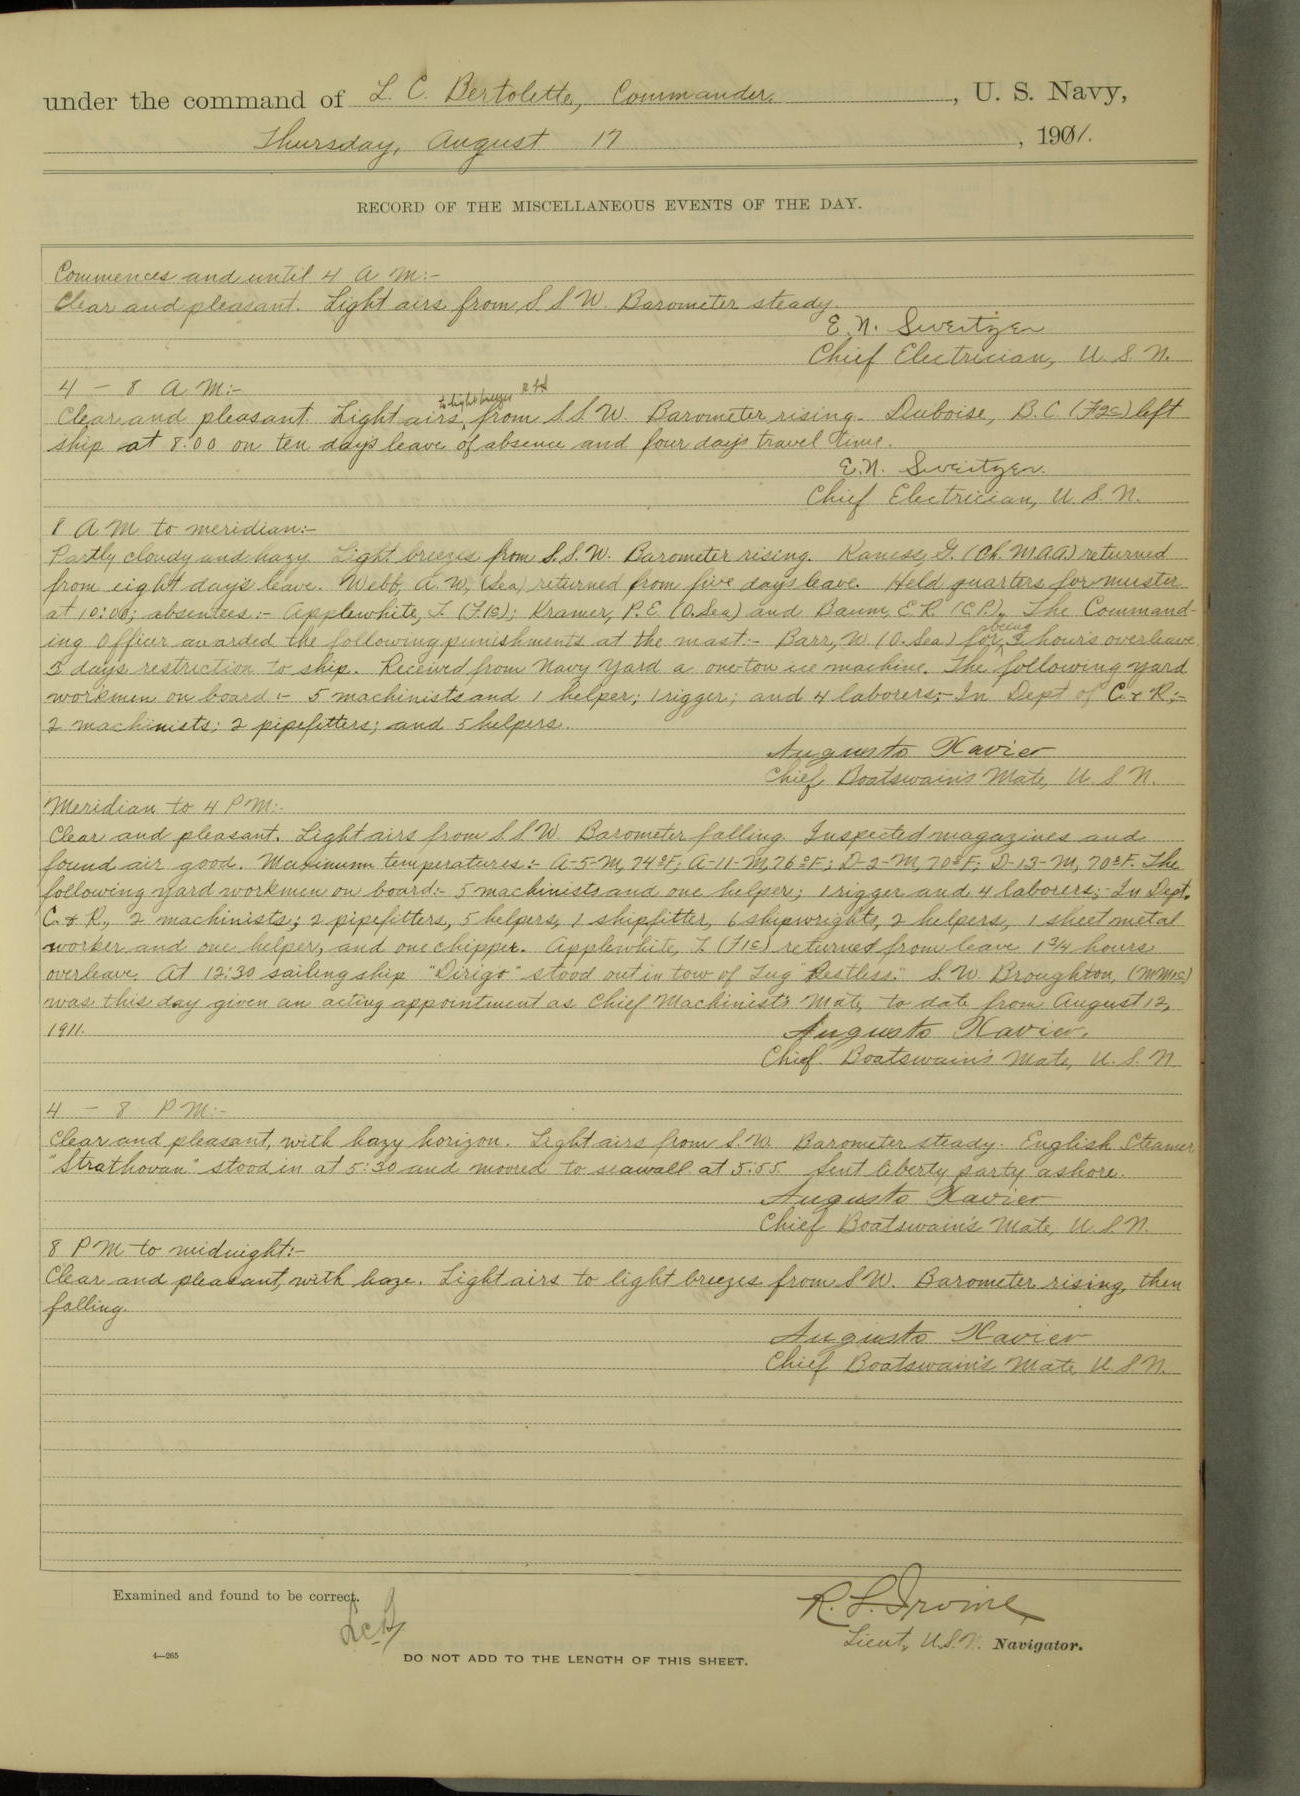 under the command of L. C. Bertolette, Commander, U. S. Navy,
Thursday, August 17, 1901.
RECORD OF THE MISCELLANEOUS EVENTS OF THE DAY.
Commences and until 4 A M:-
Clear and pleasant. Light airs from S S W. Barometer steady.
E. N. Sweitzer
Chief Electrician, U S N.
4 - 8 A M:-
to light breezes
Clear and pleasant Light airs, from S S W. Barometer rising. Duboise, B. C (F2c) left
ship at 8:00 on ten day's leave of absence and four day's travel time.
E. N. Sweitzer.
Chief Electrician, U S. N.
8 A M to meridian:-
Partly cloudy and hazy. Light breezes from S.S.W. Barometer rising. Kaness, G. (Ch. MAA) returned
from eight day's leave. Webb, A. W, (Sea) returned from five days leave. Held quarters for muster
at 10:00; absentees:- Applewhite, T. (F1c); Kramer, P. E. (O. Sea) and Baum, E R (C.P.). The Command-
being
ing Officer awarded the following punishments at the mast:- Barr, W. (O. Sea) for, 3 hours overleave
3 days restriction to ship. Received from Navy Yard a one-ton ice machine. The following yard
workmen on board:- 5 machinists and 1 helper; 1 rigger; and 4 laborers;- In Dept of C. & R;-
2 machinists; 2 pipefitters; and 5 helpers.
Augusto Xavier
Chief Boatswain's Mate, U. S N.
Meridian to 4 P M:-
Clear and pleasant. Light airs from S. S W. Barometer falling. Inspected magazines and
found air good. Maximum temperatures:- A-5-M, 74°F; A-11-M, 76°F; D-2-M, 70°F; D-13-M, 70°F. The
following yard workmen on board:- 5 machinists and one helper; 1 rigger and 4 laborers;- In Dept.
C. & R., 2 machinists; 2 pipefitters, 5 helpers, 1 shipfitter, 6 shipwrights, 2 helpers, 1 sheet metal
worker and one helper, and one chipper. Applewhite, T. (F1c) returned from leave 1 3/4 hours
overleave. At 12:30 sailing ship "Dirigo" stood out in tow of Tug "Restless". S. W. Broughton, (MM1c)
was this day given an acting appointment as Chief Machinist's Mate, to date from August 12,
1911.
Augusto Xavier.
Chief. Boatswain's Mate, U. S. N
4 - 8 P M:-
Clear and pleasant, with hazy horizon. Light airs from S. W. Barometer steady. English Steamer
"Strathovan" stood in at 5:30 and moored to seawall at 5:55. Sent liberty party ashore.
Augusto Xavier
Chief Boatswain's Mate, U. S. N.
8 P M to midnight:-
Clear and pleasant, with haze. Light airs to light breezes from S W. Barometer rising, then
falling.
Augusto Xavier
Chief Boatswain's Mate, U. S. N.
Examined and found to be correct.
R. L. Irvine,
Lieut, U. S. N. Navigator.
4—265
DO NOT ADD TO THE LENGTH OF THIS SHEET.